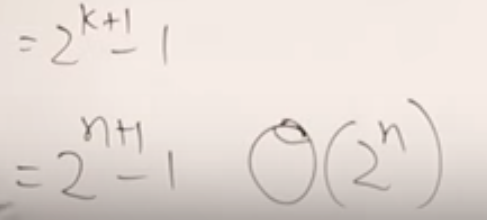 = 2^{k+1} - 1
= 2^{n+1} - 1   O(2^n)